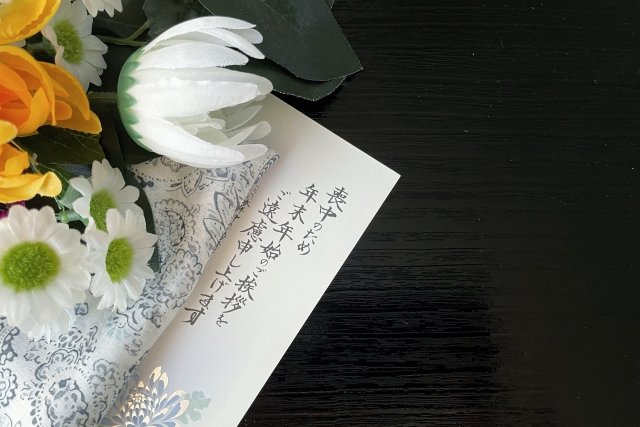 喪中のため
年末年始のご挨拶を
ご遠慮申し上げます